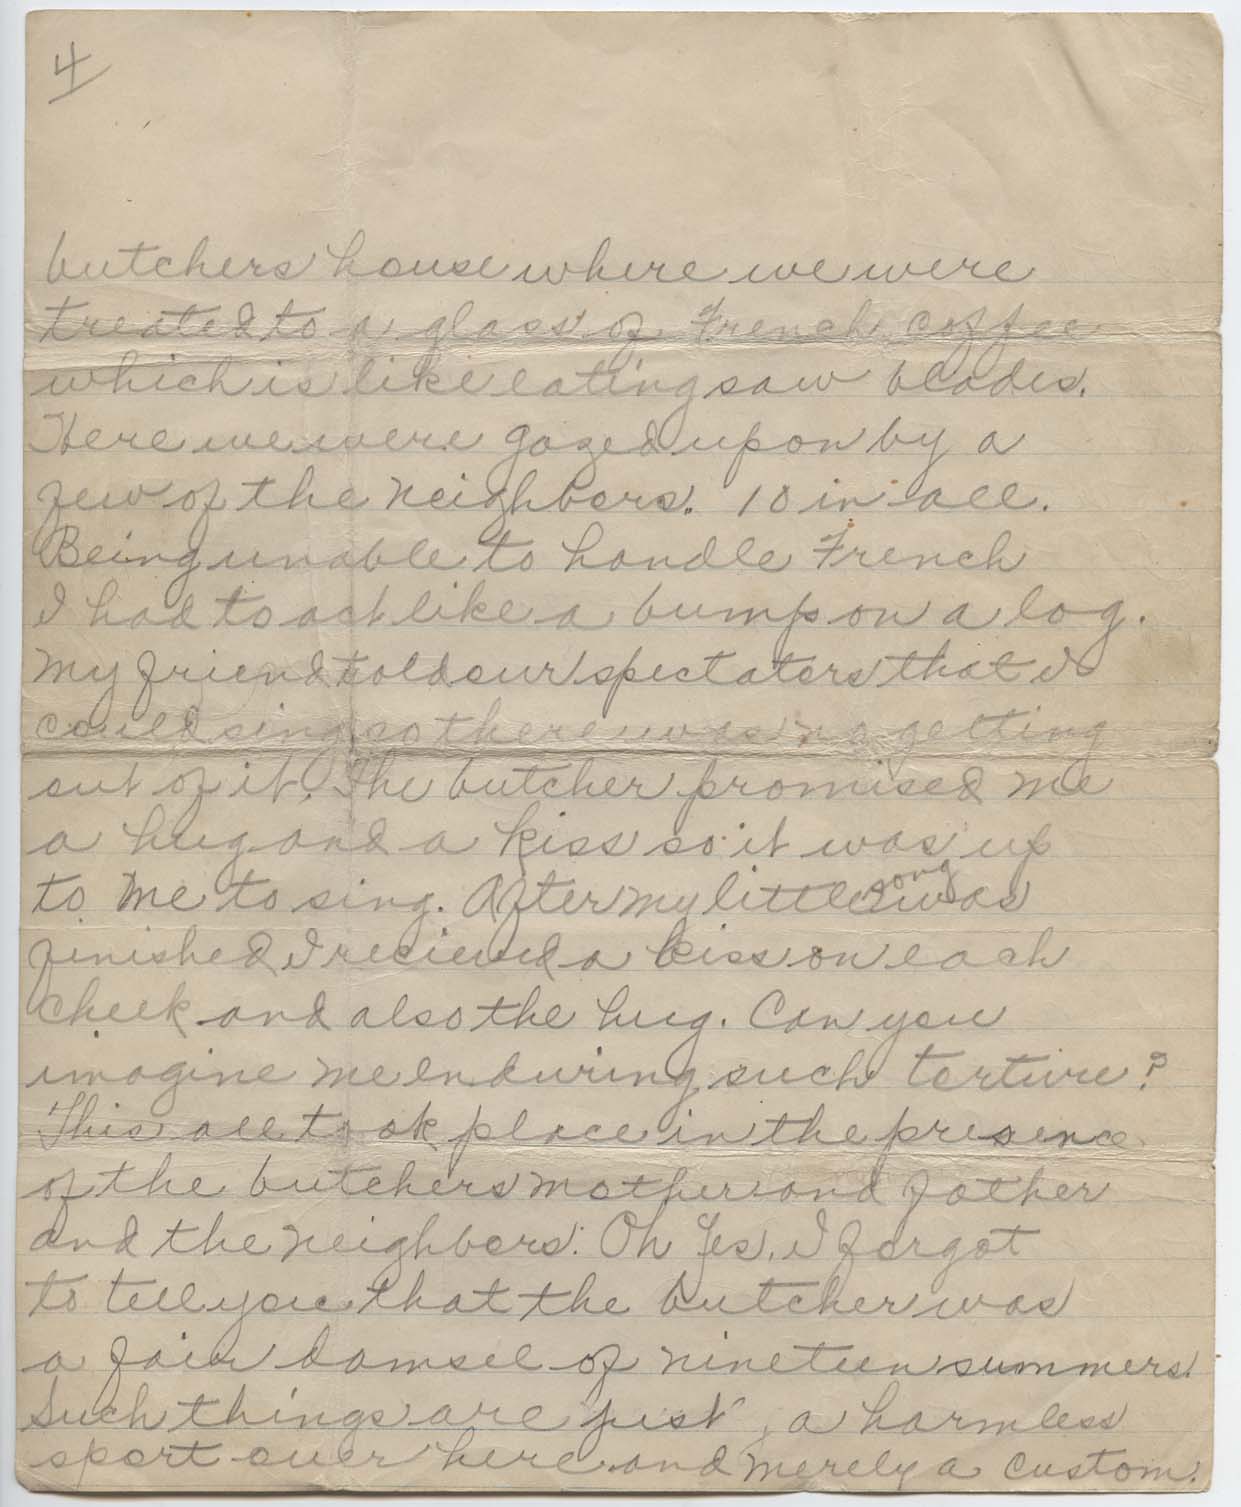 4
butchers house where we were
treated to a glass of French coffee
which is like eating saw blades.
Here we were gazed upon by a
few of the neighbors. 10 in all.
Being unable to handle French
I had to act like a bump on a log.
My friend told our spectators that I
could sing so there was no getting
out of it. The butcher promised me
a hug and a kiss so it was up
to me to sing. After my little song was
finished I recieved a kiss on each
cheek and also the hug. Can you
imagine me enduring such torture?
This all took place in the presence
of the butchers mother and father
and the neighbors. Oh Yes, I forgot
to tell you that the butcher was
a fair damsel of nineteen summers.
Such things are just a harmless
sport over here and merely a custom.